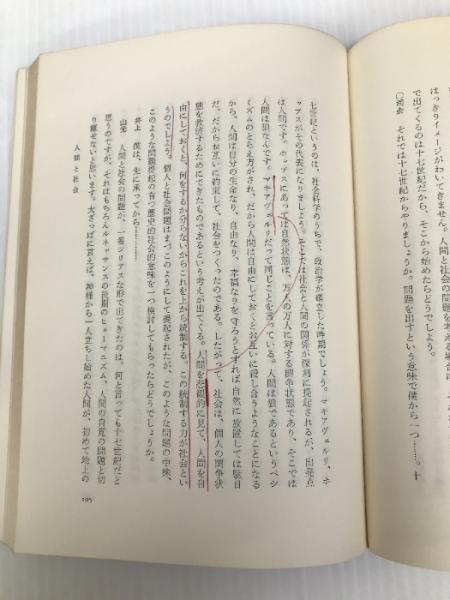 で出てくるのは十七世紀だから、そこから始めたらどうでしょう。
はっきりイメージがわいてきません。人間と社会の問題を考える場合に
〇司会 それでは十七世紀からやりましょうか。問題を出すという意味で僕から一つ……。十
七世紀というのは、社会科学のうちで、政治学が確立した時期でしょう。マキアヴェルリ、ホ
ッブスがその代表になりましょう。そこでは社会と人間の関係が深刻に提起されるが、出発点
は人間です。ホッブスにあっては自然状態は、万人の万人に対する闘争状態であり、そこでは
人間は狼なんです。マキアヴェルリだって同じことを言っている。人間は狼であるというペシ
ミズムのとらえ方がされ、だから人間は自由にしておくとお互いに殺し合うようなことになる
から、人間は自分の生命なり、自由なり、幸福なりを守ろうとすれば自然に放置しては駄目
だ、だからお互いに約束して、社会をつくったのである。したがって、社会は、個人の闘争状
態を救済するためにできたものであるという考えが出てくる。人間を悲観的に見て、人間を自
由にしておくと、何をするか分らないからこれを上から統制する。この統制する力が社会とい
うのでしょう。個人と社会問題はまずこのようにして提起されたが、このような問題の中味、
このような問題提起の有つ歴史的社会的意味を一つ検討してもらったらどうでしょうか。
井上 僕は、先に承ってから……
山元 人間と社会の問題が、一番シリアスな形で出てきたのは、何と言っても十七世紀だと
思うのですが、それはもちろんルネッサンスの後期のヒューマニズム、人間の自覚の問題と切
り離せないと思います。大ざっぱに言えば、神様から一人立ちし始めた人間が、初めて地上の
人間と社会
105